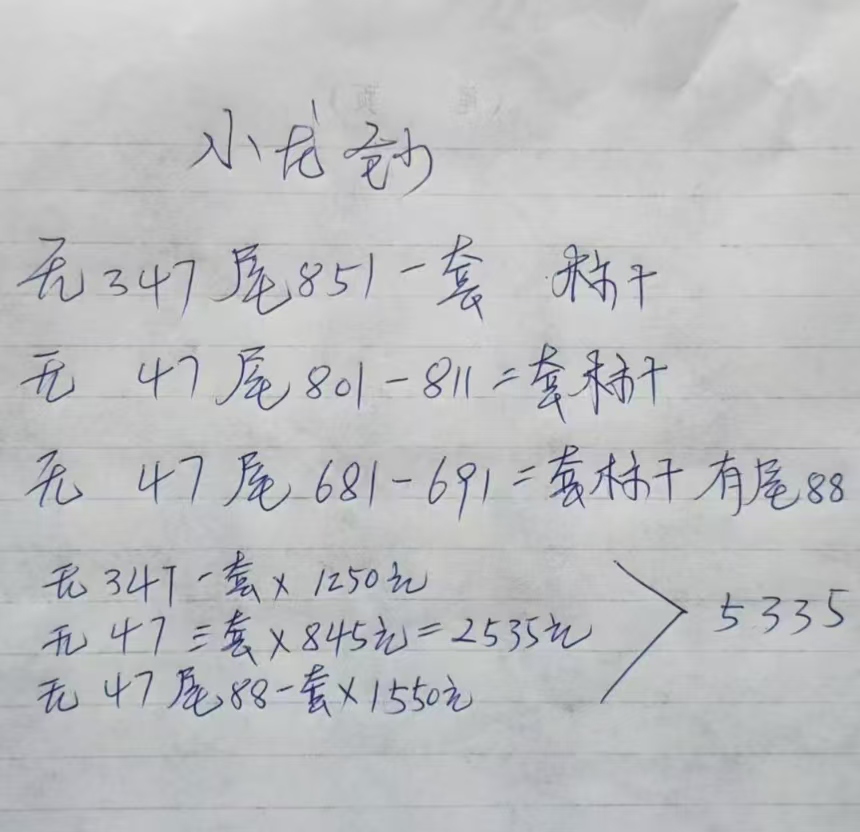 小龙钞
无347尾851一套 标十
无 47尾801-811=套标十
无 47尾681-691=套标十 有尾88
无347一套×1250元
无 47三套×845元=2535元
无 47尾88一套×1550元
5335